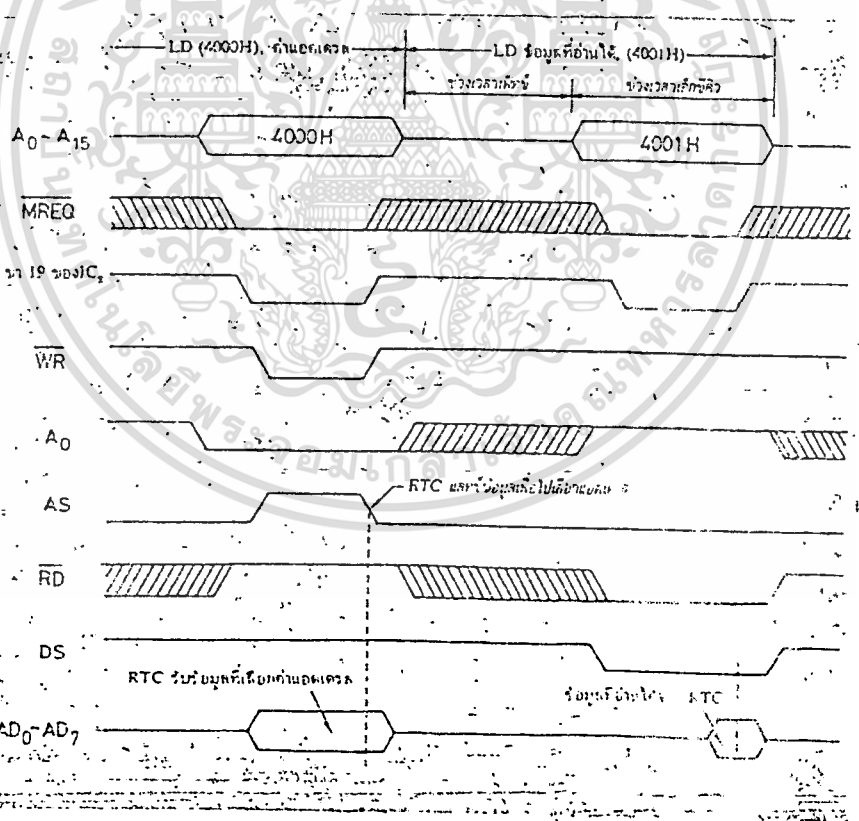 LD (4000H), ค่าแอดเดรส
LD ข้อมูลที่อ่านได้, (4001H)
ช่วงเวลาเฟตช์
ช่วงเวลาเอ็กซีคิว
A0 - A15
4000H
4001H
MREQ
ขา 19 ของ IC
WR
A0
AS
RTC
RD
DS
RTC รับข้อมูลที่เลือกค่าแอดเดรส
ข้อมูลที่อ่านได้ RTC
AD0-AD7